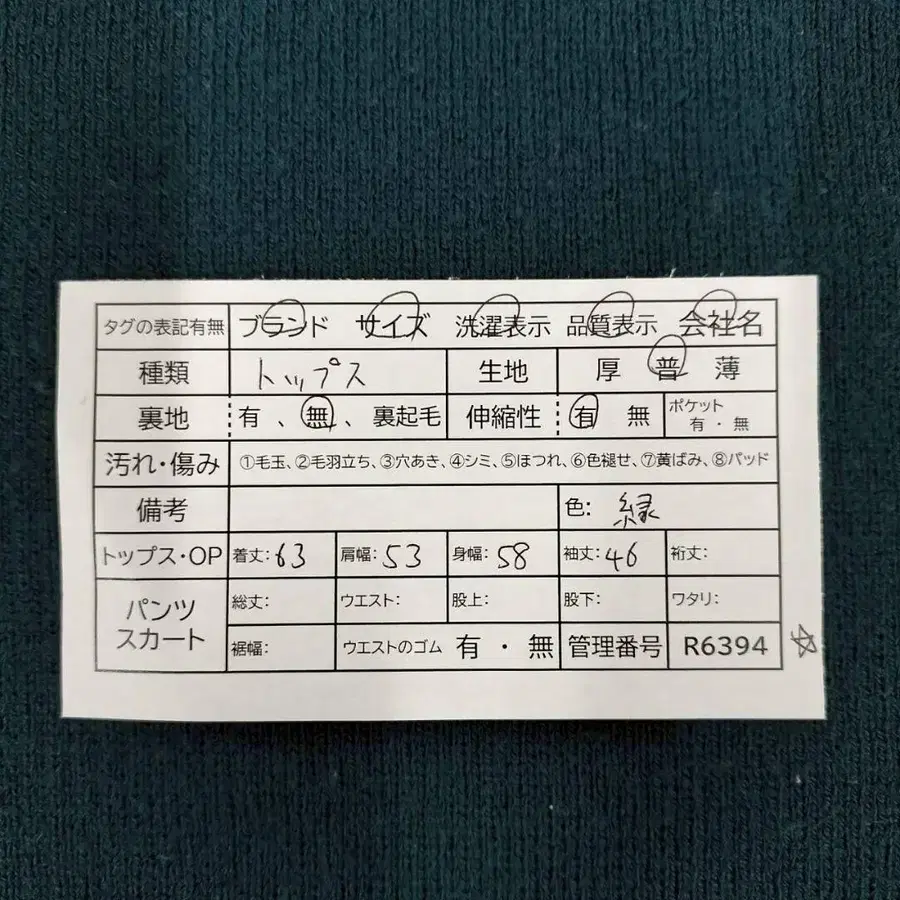 タグの表記有無 ブランド サイズ 洗濯表示 品質表示 会社名
種類 トップス 生地 厚 普 薄
裏地 有 、 無 、 裏起毛 伸縮性 有 無 ポケット 有・無
汚れ・傷み ①毛玉、②毛羽立ち、③穴あき、④シミ、⑤ほつれ、⑥色褪せ、⑦黄ばみ、⑧パッド
備考 色: 緑
トップス・OP 着丈: 63 肩幅: 53 身幅: 58 袖丈: 46 裄丈:
パンツ スカート 総丈: ウエスト: 股上: 股下: ワタリ:
裾幅: ウエストのゴム 有 ・ 無 管理番号 R6394